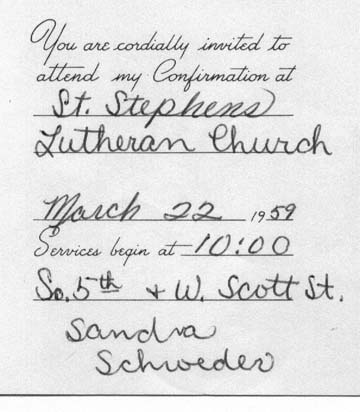 You are cordially invited to
attend my Confirmation at
St. Stephens
Lutheran Church
March 22 1959
Services begin at 10:00
So. 5th + W. Scott St.
Sandra
Schroeder